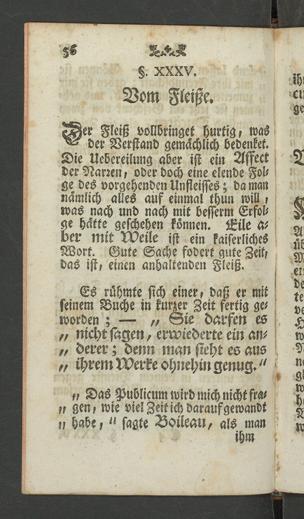 56
§. XXXV.
Vom Fleiße.
Der Fleiß vollbringet hurtig, was
der Verstand gemächlich bedenket.
Die Uebereilung aber ist ein Affect
der Narren, oder doch eine elende Fol-
ge des vorgehenden Unfleisses; da man
nämlich alles auf einmal thun will,
was nach und nach mit besserm Erfol-
ge hätte geschehen können. Eile a-
ber mit Weile ist ein kaiserliches
Wort. Gute Sache fodert gute Zeit,
das ist, einen anhaltenden Fleiß.
Es rühmte sich einer, daß er mit
seinem Buche in kurzer Zeit fertig ge-
worden; — „ Sie darfen es
„ nicht sagen, erwiederte ein an-
„ derer; denn man sieht es aus
„ ihrem Werke ohnehin genug.“
„ Das Publicum wird mich nicht fra-
„ gen, wie viel Zeit ich darauf gewandt
„ habe, “ sagte Boileau, als man
ihm